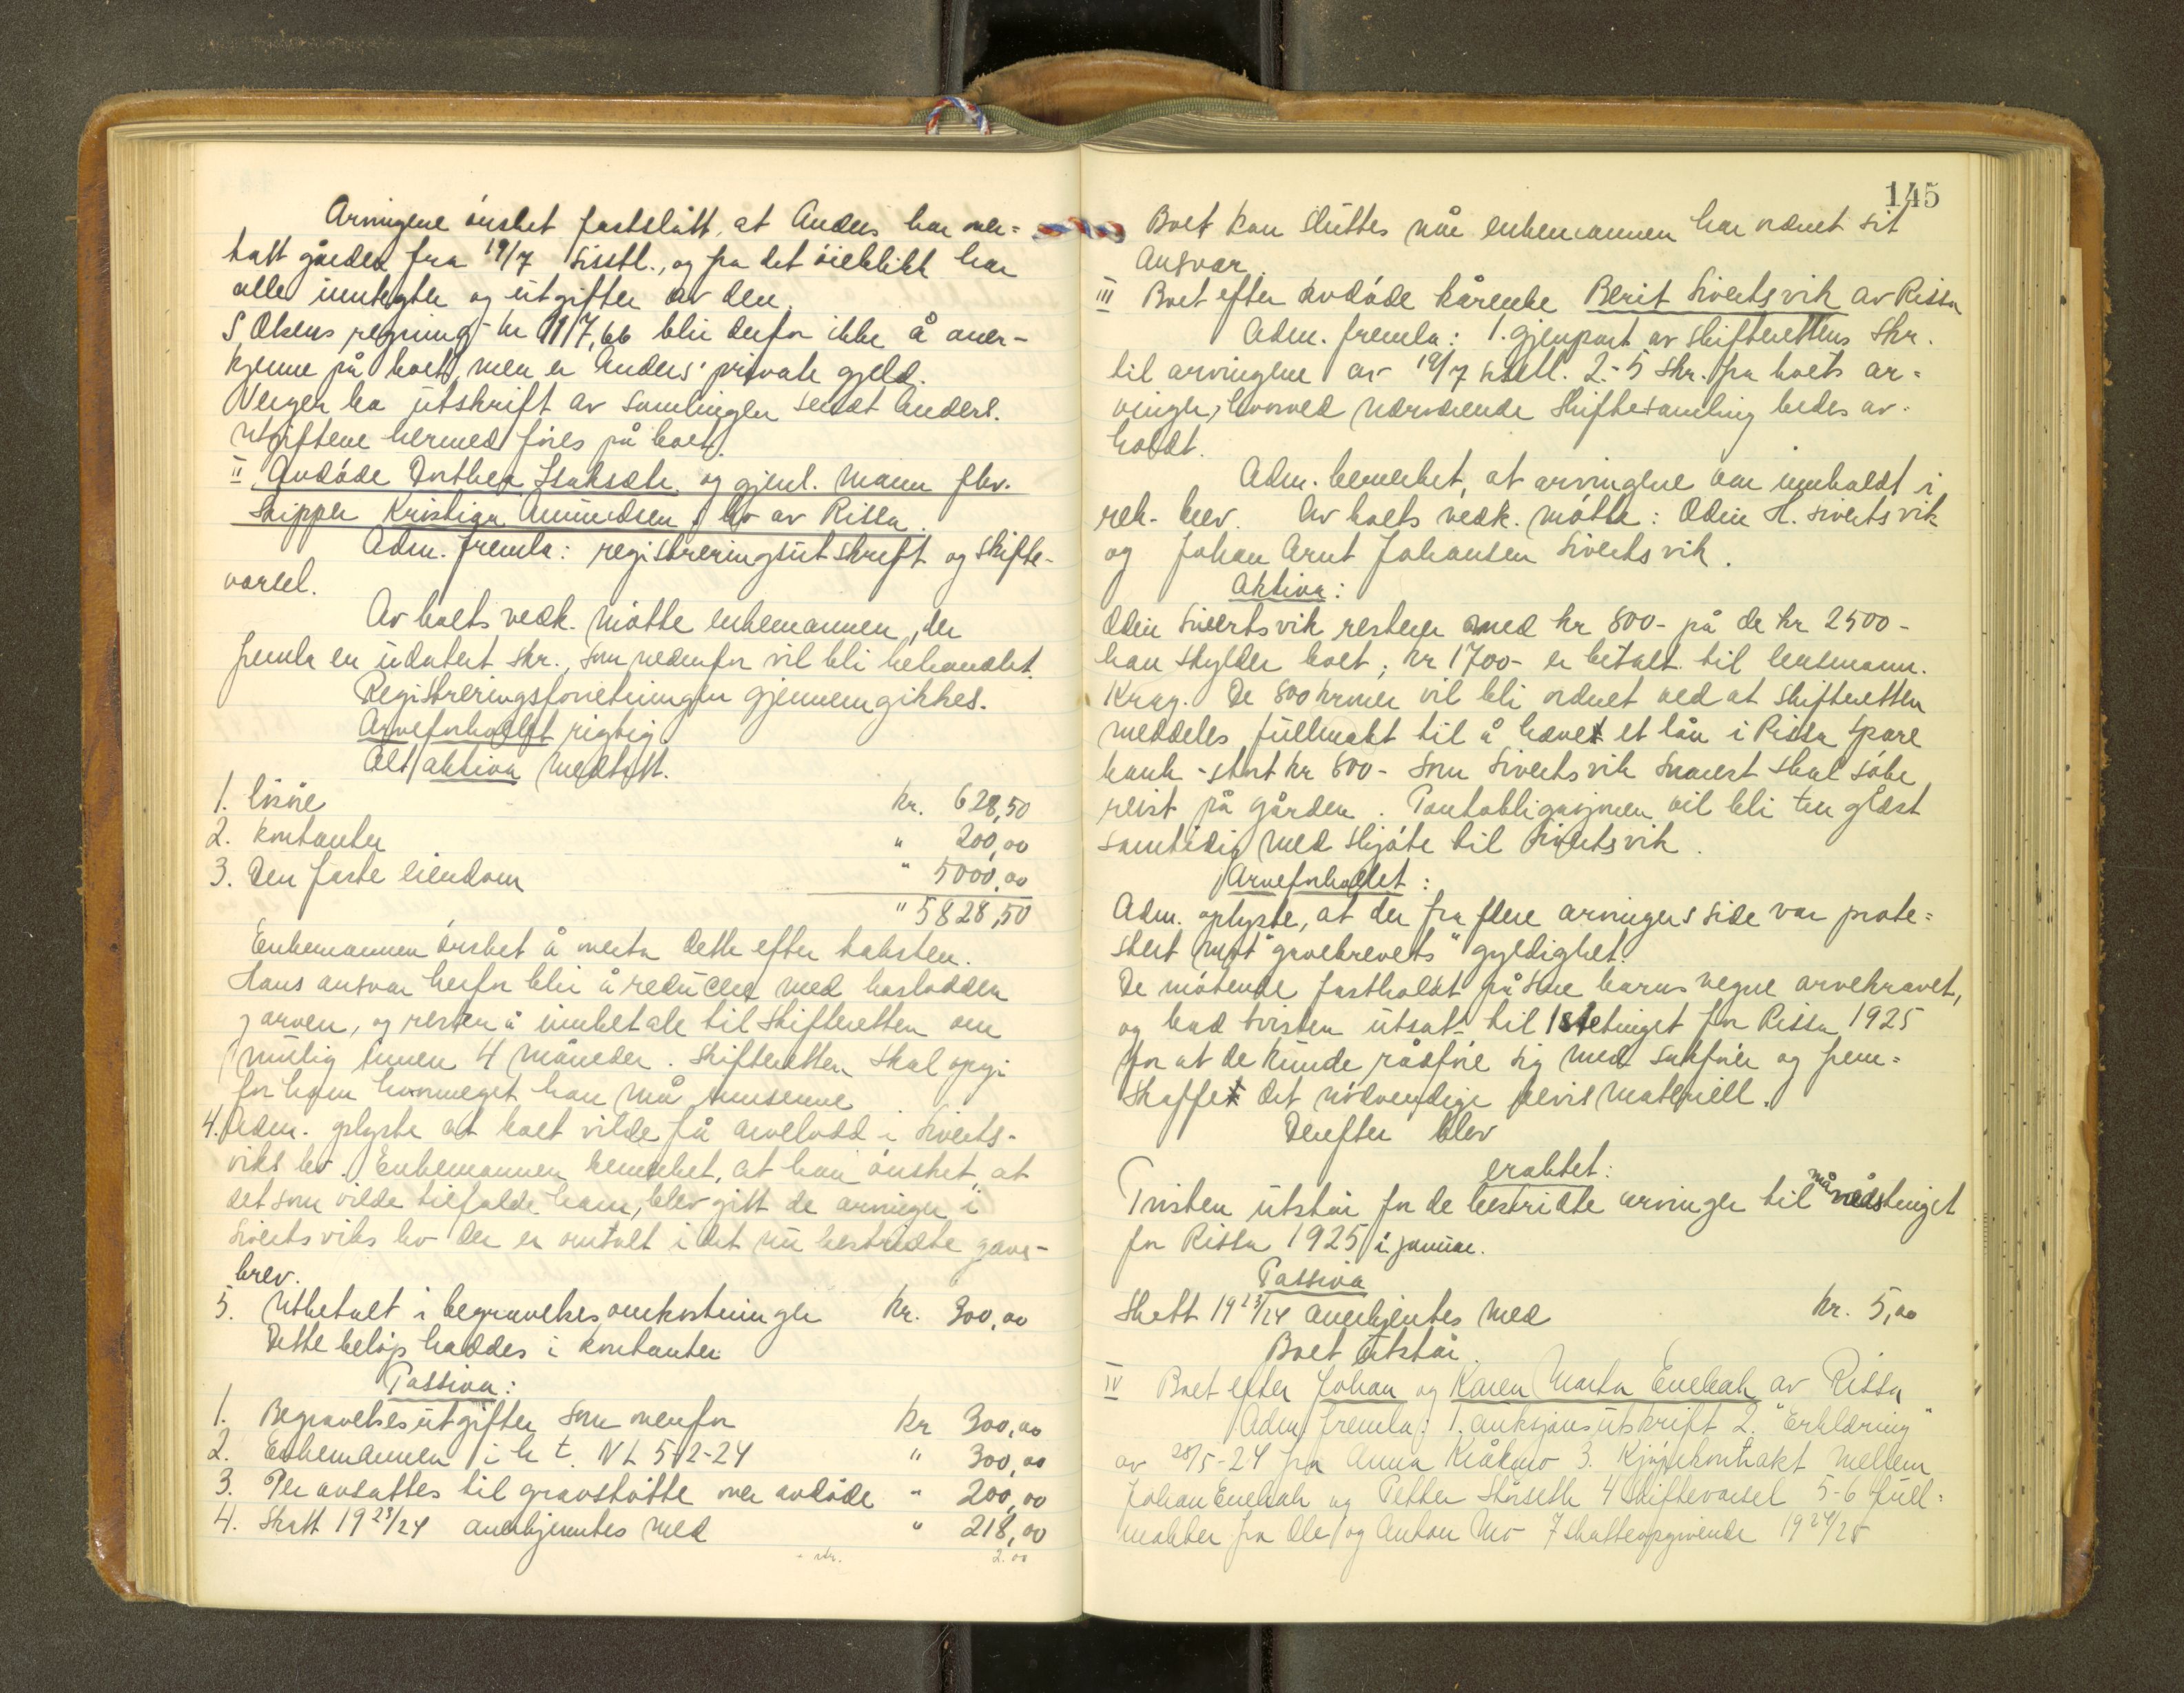 Arvingene ønsket fastslått, at Anders har over=
tatt gården fra 19/7 sisstl., og fra det øieblikk har
alle inntegter og utgifter av den.
S. Olsens regning kr 117,66 blir derfor ikke å aner-
kjenne på boet, men er Anders' private gjeld.
Verger ha utskrift av samlingen sendt Anders.
Utgiftene hermed føres på boet.
II Avdøde Dorthea Staksæth og gjenl. mann fhv.
skipper Kristian Amundsen's bo av Rissa.
Adm. fremla: registreringsutskrift og skifte-
varsel.
Av boets vedk. møtte enkemannen, der
fremla en udatert skr., som nedenfor vil bli behandlet.
Registreringsforretningen gjennemgikkes.
Arveforholdet rigtig
Alt aktiva medtatt.
1. Løsøre kr. 628,50
2. kontanter " 200,00
3. Den faste eiendom " 5000,00
" 5828,50
Enkemannen ønsket å overta dette efter taksten.
Hans ansvar herfor blir å reducere med boslodden
og arven, og resten å innbetale til skifteretten om
mulig innen 4 måneder. Skifteretten skal opgi
for ham hvormeget han må
4. Adm. oplyste at boet vilde få arvelodd i Siverts-
viks bo. Enkemannen bemerket, at han ønsket, at
det som vilde tilfalde ham, blev gitt de arvinger i
Sivertsviks bo der er omtalt i det nu bestridte gave-
brev.
5. Utbetalt i begravelsesomkostninger kr. 300,00
Dette beløp haddes i kontanter
Passiva:
1. Begravelsesutgifter som ovenfor kr 300,00
2. Enkemannen i h t. NL 5-2-24 " 300,00
3. Pler avsattes til gravstøtte over avdøde " 200,00
4. Skatt 19 23/24 anerkjenntes med " 218,00
2.00
145
Boet kan sluttes når enkemannen har ordnet sit
ansvar.
III Boet efter avdøde kårenke Berit Sivertsvik av Rissa
Adm. fremla: 1. gjenpart av skifterettens skr.
til arvingene av 19/7 sisstl. 2.-5 skr. fra boets ar=
vinger, hvorved nærværende skiftesamling bedes av-
holdt.
Adm. bemerket, at arvingene var innkaldt i
rek. brev. Av boets vedk. møtte: Odin H. Sivertsvik
og Johan Arnt Johansen Sivertsvik.
Aktiva:
Odin Sivertsvik resterer med kr 800- på de kr 2500-
han skylder boet; kr 1700- er betalt til lensmann.
Krag. De 800 kroner vil bli ordnet ved at skifteretten
meddeles fullmakt til å hæve et lån i Rissa spare
bank - stort kr 800- som Sivertsvik snarest skal søke
reist på gården. Pantobligasjonen vil bli tinglæst
samtidig med skjøte til Sivertsvik.
Arveforholdet:
Adm. oplyste, at der fra flere arvingers side var prote=
stert mot "gavebrevets" gyldighet.
De møtende fastholdt på sine barns vegne arvekravet,
og bad tvisten utsatt til 1ste tinget for Rissa 1925
for at de kunde rådføre sig med sakfører og frem=
skaffe det nødvendige bevismateriell.
Derefter blev
eraktet:
Tvisten utstår for de bestridte arvinger til månedstinget
for Rissa 1925 i januar.
Passiva
Skatt 19 23/24 anerkjentes med kr. 5,00
Boet utstår.
IV Boet efter Johan og Karen Marta Enebak av Rissa
Adm. fremla: 1. auksjonsutskrift 2. "Erklæring"
av 28/5-24 fra Anna 3. Kjøpekontrakt mellem
Johan Enebak og Petter Størseth 4 skiftevarsel 5-6 full=
makter fra Ole og Anton Mo 7 skatteopgivende 19 24/25